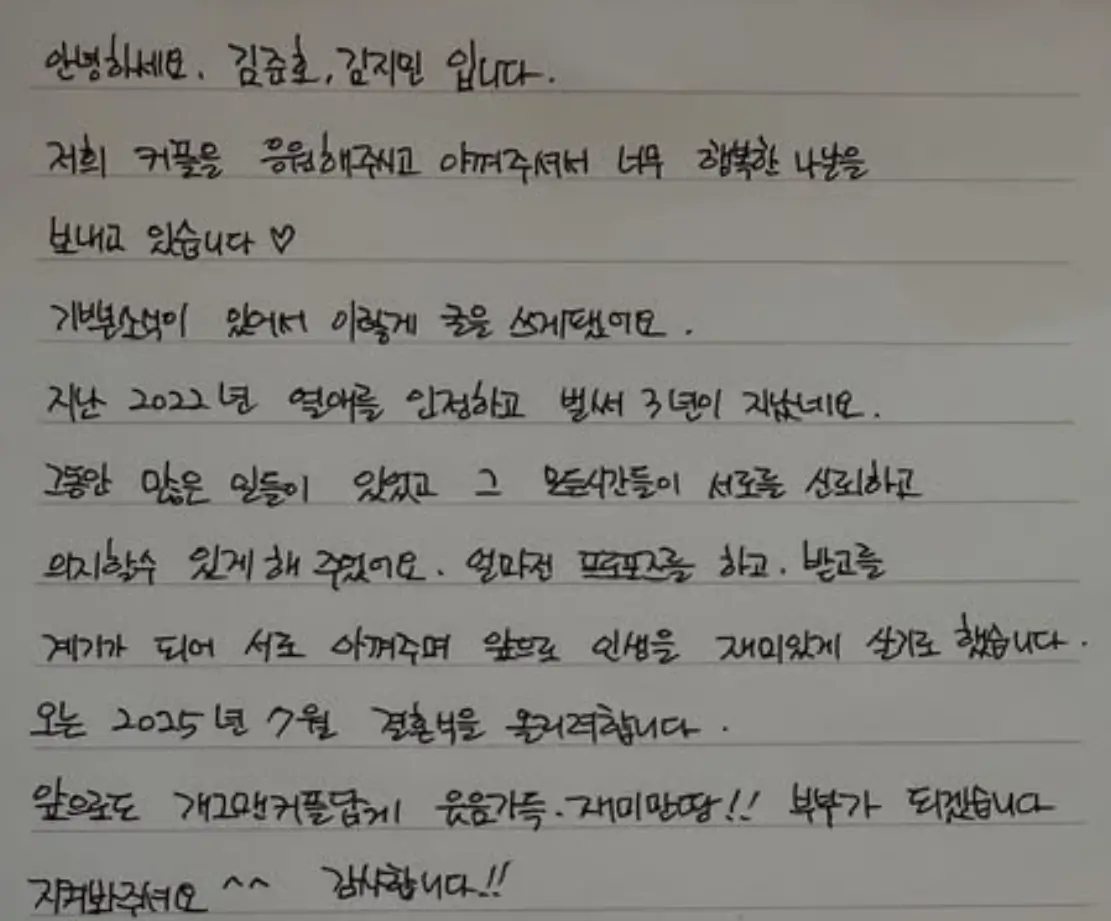 안녕하세요. 김준호, 김지민 입니다.
저희 커플을 응원해주시고 아껴주셔서 너무 행복한 나날을
보내고 있습니다 ♡
기쁜소식이 있어서 이렇게 글을 쓰게됐어요.
지난 2022년 열애를 인정하고 벌써 3년이 지났네요.
그동안 많은 일들이 있었고 그 모든시간들이 서로를 신뢰하고
의지할수 있게 해 주었어요. 얼마전 프로포즈를 하고. 받고를
계기가 되어 서로 아껴주며 앞으로 인생을 재미있게 살기로 했습니다.
오는 2025년 7월 결혼식을 올리려합니다.
앞으로도 개그맨커플답게 웃음가득. 재미만땅!! 부부가 되겠습니다
지켜봐주셔요 ^^ 감사합니다!!